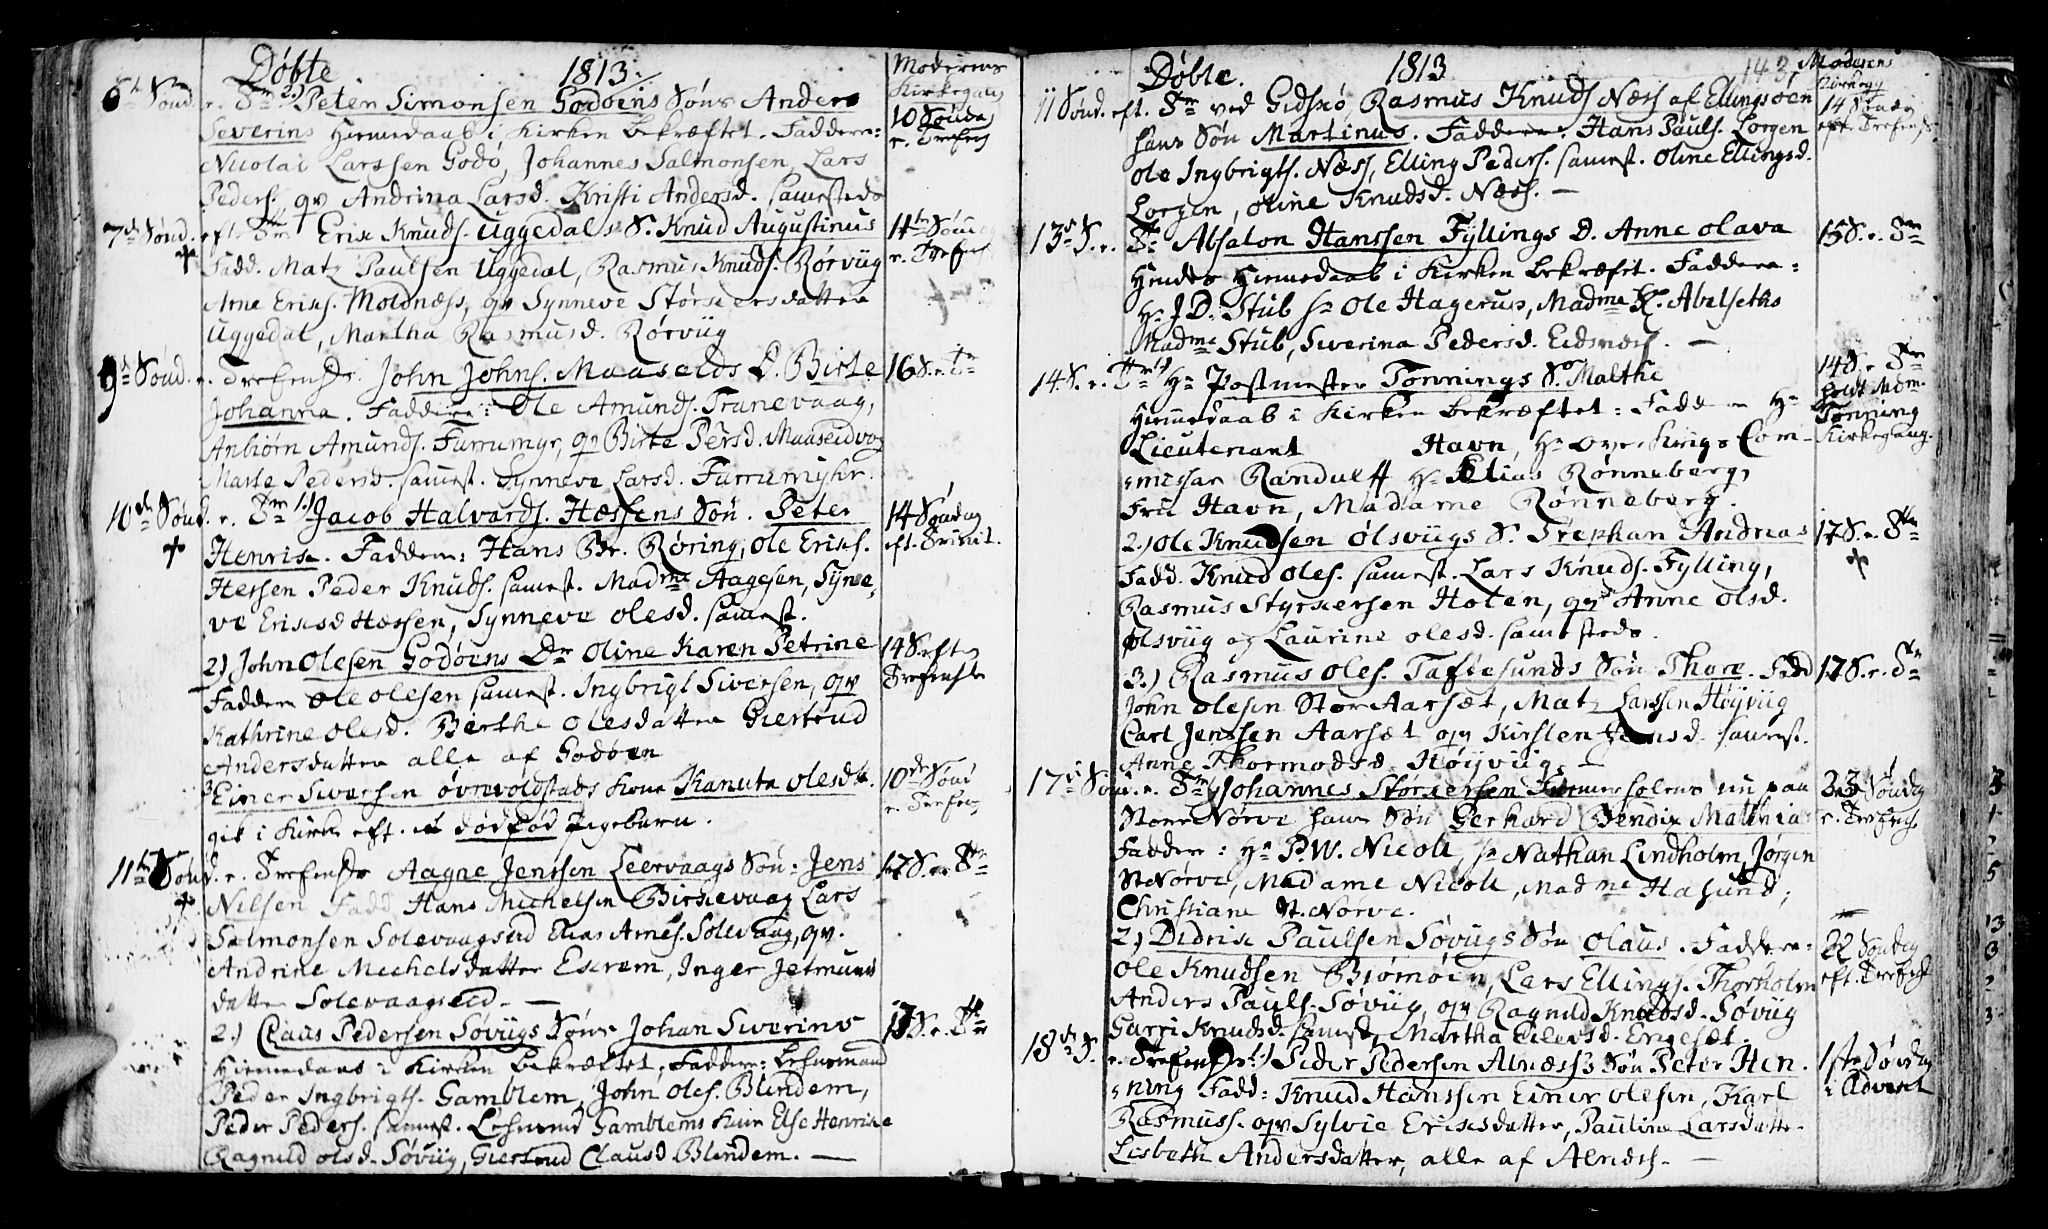 Døbte. 1813.
Moderens
Kirkegang
6te Sønd. e. Tr. 2.) Peter Simonsen Godøens Søn Anders
Severin Hiemedaab i Kirken bekræftet. Faddere:
Nicolai Larssen Godø, Johannes Salmonsen, Lars
Peders. qv Andrina Larsd. Kristi Andersd. samesteds
10 Søndag
e. Trefens
7de Sønd. eft. Tr. Erik Knuds. Uggedals S. Knud Augustinus
Fadd. Matz Paulsen Uggedal, Rasmus Knuds. Rørviig
Arne Erichs. Moldnæss, qv Synneve Størkersdatter
Uggedal, Martha Rasmusd. Rørviig
11te Sønd
e. Trefens
9de Sønd. e. Trefensts. John Johns. Maaseids D. Birte
Johanna. Faddere: Ole Amunds. Tranevaag,
Anbiørn Amunds. Furrumyr, qv Birte Persd. Maaseidvog
Marte Pedersd. samest. Synneve Larsd. Furrumyhr.
16 S. e. Tr
10de Sønd. e. Tr 1.) Jacob Halvards. Hessens Søn. Peter
Henrik. Faddere: Hans Br. Røring, Ole Erichs.
Hessen Peder Knuds. samest. Madme Aagesen, Syne
ve Eriksd Hessen, Synneve Olesd. samest.
14 Søndag
eft. Trinit.
2.) John Olesen Godøens Dr Oline Karen Petrine
Faddere Ole Olesen samest. Ingbrigt Siversen, qv
Kathrine Olesd. Berthe Olesdatter Giertrud
Andersdatter alle af Godøen
14 S. eft
Trefenst
3 Einer Siversen Øvrevoldstads Kone Kanuta Olesdt.
gik i Kirke eft. et dødfød Pigebarn.
10de Sønd
e. Trefens
11te Sønd. e. Trefensts Aagne Jenssen Leervaags Søn: Jens
Nilsen Fadd Hans Michelsen Birkevaag Lars
Salmonsen Solevaagseid Elias Arnes. Solevaag, qv.
Andrine Mechelsdatter Eskrem, Inger Jetmund
datter Solevaagseid. —
17 S. e. Tr
2.) Claus Pedersen Søviigs Søn Johan Siverins
Hiemedaab i Kirken bekræftet. Faddere: Lehnsmand
Peder Ingbrigts. Gamblem, John Oles. Blindem,
Peder Peders. samest. Lehnsmd Gamblems Kone Else Henrike
Ragnild Olsd. Søviig, Giertrud Clausd Blindem. —
17 S. e. Tr
Døbte. 1813 143 Moderens
Kirkegg
11 Sønd. eft. Tr ved Gidskø Rasmus Knuds Næss af Ellingsøen
hans Søn Martinus. Faddere. Hans Pauls. Lorgen
Ole Ingbrigts. Næss, Elling Peders. samest. Oline Ellingsd.
Lorgen, Oline Knudsd. Næss. —
14 Søndag
eft. Trefens
13de S. e. Tr Absalon Hanssen Fyllings D. Anne Olava
Hendes Hiemedaab i Kirken bekræftet. Faddere:
Hr J.D. Stub Hr Ole Hagerup, Madme K. Abelseths
Madme Stub, Siverina Pedersd. Eidsnæs. —
15 S. e. Tr
14 S. e. Tr 1) Hr Postmester Tønnings S. Malthe
Hiemedaab i Kirken bekræftet: Fadd Hr
Lieutenant Havn, Hr Over Krigs Com
missar Randulff Hr Elias Rønneberg,
Fru Havn, Madame Rønneberg.
14 S. e. Tr
holdt Mdm.
Tønning
Kirkegang.
2.) Ole Knudsen Ølsviigs S. Stephan Andreas
Fadd. Knud Oles. samest. Lars Knuds. Fylling,
Rasmus Styrkersen Holen, qv Anne Olsd.
Ølsviig og Laurine Olesd. samesteds.
17 S. e. Tr
3.) Rasmus Oles. Taftesunds Søn Thore. Fadd
John Olesen Stor Aarsæt, Matz Larssen Høyviig
Carl Jenssen Aarsæt qv Kirsten Jensd. samest.
Anne Thormodsd. Høyviig. —
17 S. e. Tr
17de Sønd. e. Tr 1) Johannes Størkersen Furmyrholens nu paa
Store Nørve hans Søn Gerhard Bendix Mathias
Faddere: Hr P.W. Nicoll, Hr Nathan Lindholm, Jørgen
St. Nørve, Madame Nicoll, Madme Hasund,
Christiane St. Nørve.
23 Søndag
e. Trefens
2.) Didrik Paulsen Søviigs Søn Olaus. Faddere:
Ole Knudsen Biørnøen, Lars Ellings. Thorholm
Anders Pauls. Søviig, qv Ragnild Knudsd. Søviig
Gurri Knudsd. samest. Martha Eilersd. Engeset.
22 Søndag
eft. Trefenst
18de S. e. Trefensts 1.) Peder Pedersen Alnæss's Søn Peter Hen
ning Fadd: Knud Hanssen Einer Olesen, Karl
Rasmuss. qv Sylvie Eriksdatter, Pauline Larsdatter
Lisbeth Andersdatter, alle af Alnæs. —
1ste Søndag
i Advent